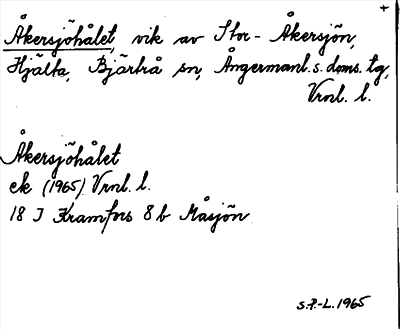 Åkersjöhålet, vik av Stor-Åkersjön,
Hjälta, Bjärtrå sn, Ångermanl. s. doms. tg,
Vrnl. l.
Åkersjöhålet
ek (1965) Vrnl. l.
18 J Kramfors 8 b Måsjön
S.P.-L. 1965